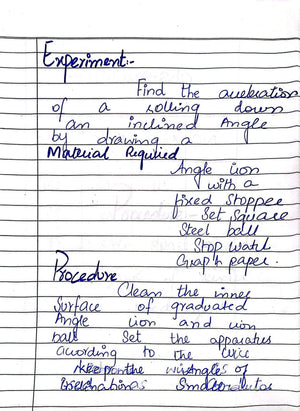 Experiment:-
Find the acceleration
of a rolling down
an inclined Angle
by drawing a
Material Required
Angle iron
with a
fixed Stopper
Set Square
Steel ball
Stop watch
Graph paper.
Procedure
Clean the inner
Surface of graduated
Angle iron and iron
ball Set the apparatus
according to the
of